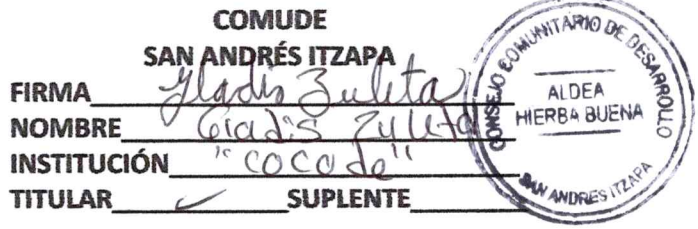 COMUDE
SAN ANDRÉS ITZAPA
FIRMA Gladis Zuleta
NOMBRE Gladis Zuleta
INSTITUCIÓN "COCOde"
TITULAR ✓ SUPLENTE
CONSEJO COMUNITARIO DE DESARROLLO
ALDEA
HIERBA BUENA
SAN ANDRES ITZAPA